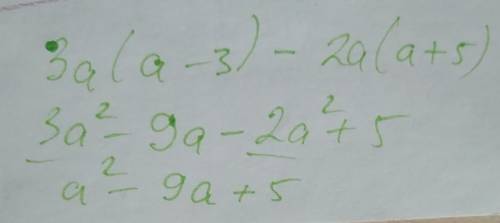 3a(a-3) - 2a(a+5)
3a² - 9a - 2a² + 5
a² - 9a + 5